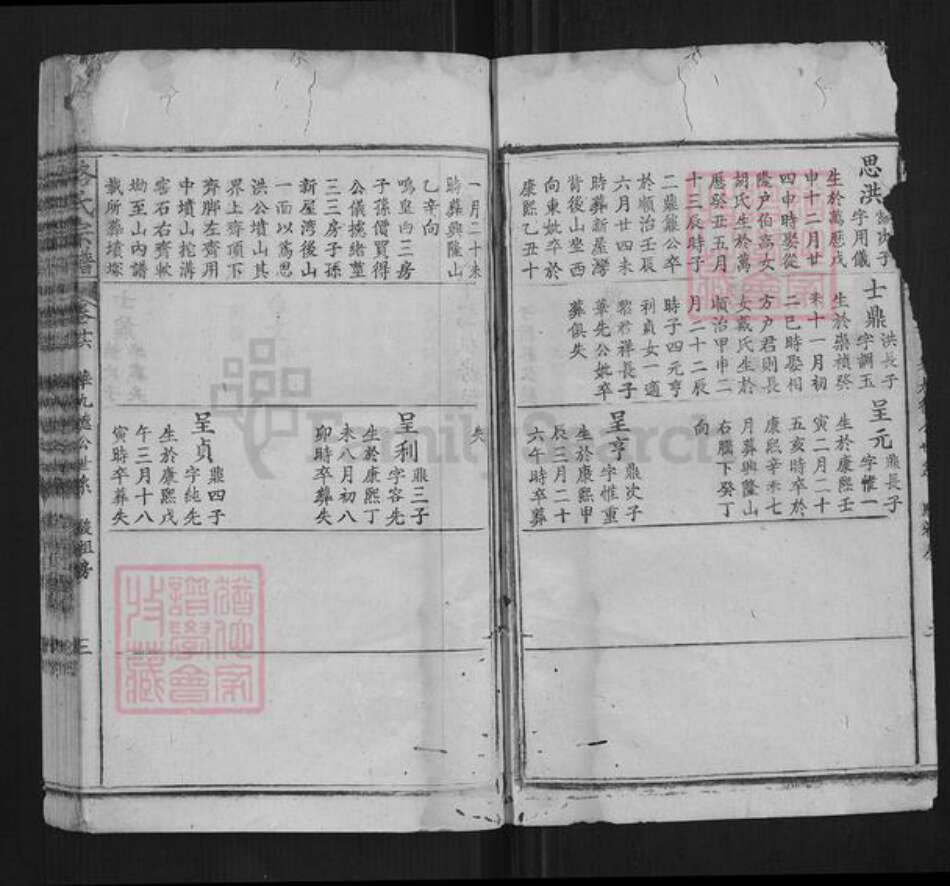 思洪
次子
字用儀
生於萬歷戊
申十二月廿
四申時娶從
隆户伯高女
胡氏生於萬
歷癸丑五月
十三辰時子
二鼎鼐公卒
於順治壬辰
六月廿四未
時葬新屋灣
背後山坐西
向東妣卒於
康熙乙丑十
士鼎
洪長子
字調玉
生於崇禎癸
未十一月初
二巳時娶相
方户君則長
女戴氏生於
順治甲申二
月二十二辰
時子四元亨
利貞女一適
黎君祥長子
華先公妣卒
葬俱失
呈元
鼎長子
字惟一
生於康熙壬
寅二月二十
五亥時卒於
康熙辛未七
月葬興隆山
右臈下癸丁
向
呈亨
鼎次子
字惟重
生於康熙甲
辰三月二十
六午時卒葬
一月二十未
時葬興隆山
乙辛向
鳴皇尚三房
子孫價買得
公儀擴緒塟
三三房子孫
新屋湾後山
一面以爲思
洪公墳山其
界上齊頂下
齊脚左齊用
中墳山挖溝
窖石右齊軟
坳至山內譜
載所葬墳塚
失
呈利
鼎三子
字容先
生於康熙丁
未八月初八
卯時卒葬失
呈貞
鼎四子
字純先
生於康熙戊
午三月十八
寅時卒葬失
氏宗譜
卷廿六
公世系
三
譜學會
收藏
FamilySearch